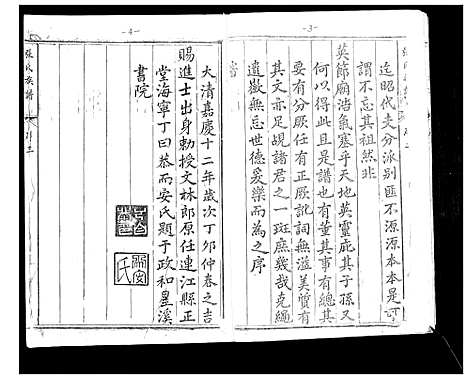 -3-
迄昭代支分派别匪不源源本本是可
謂不忘其祖然非
英節廟浩氣塞乎天地英靈庇其子孫又
何以得此且是譜也有董其事有總其
要有分厥任有正厥訛詞無溢美質有
其文亦足覘諸君之一斑庶幾哉克繩
遺徽無忘世德爰樂而為之序
-4-
大清嘉慶十二年歲次丁卯仲春之吉
賜進士出身勅授文林郎原任連江縣正
堂海寧丁曰恭而安氏題于政和星溪
書院
張氏族譜